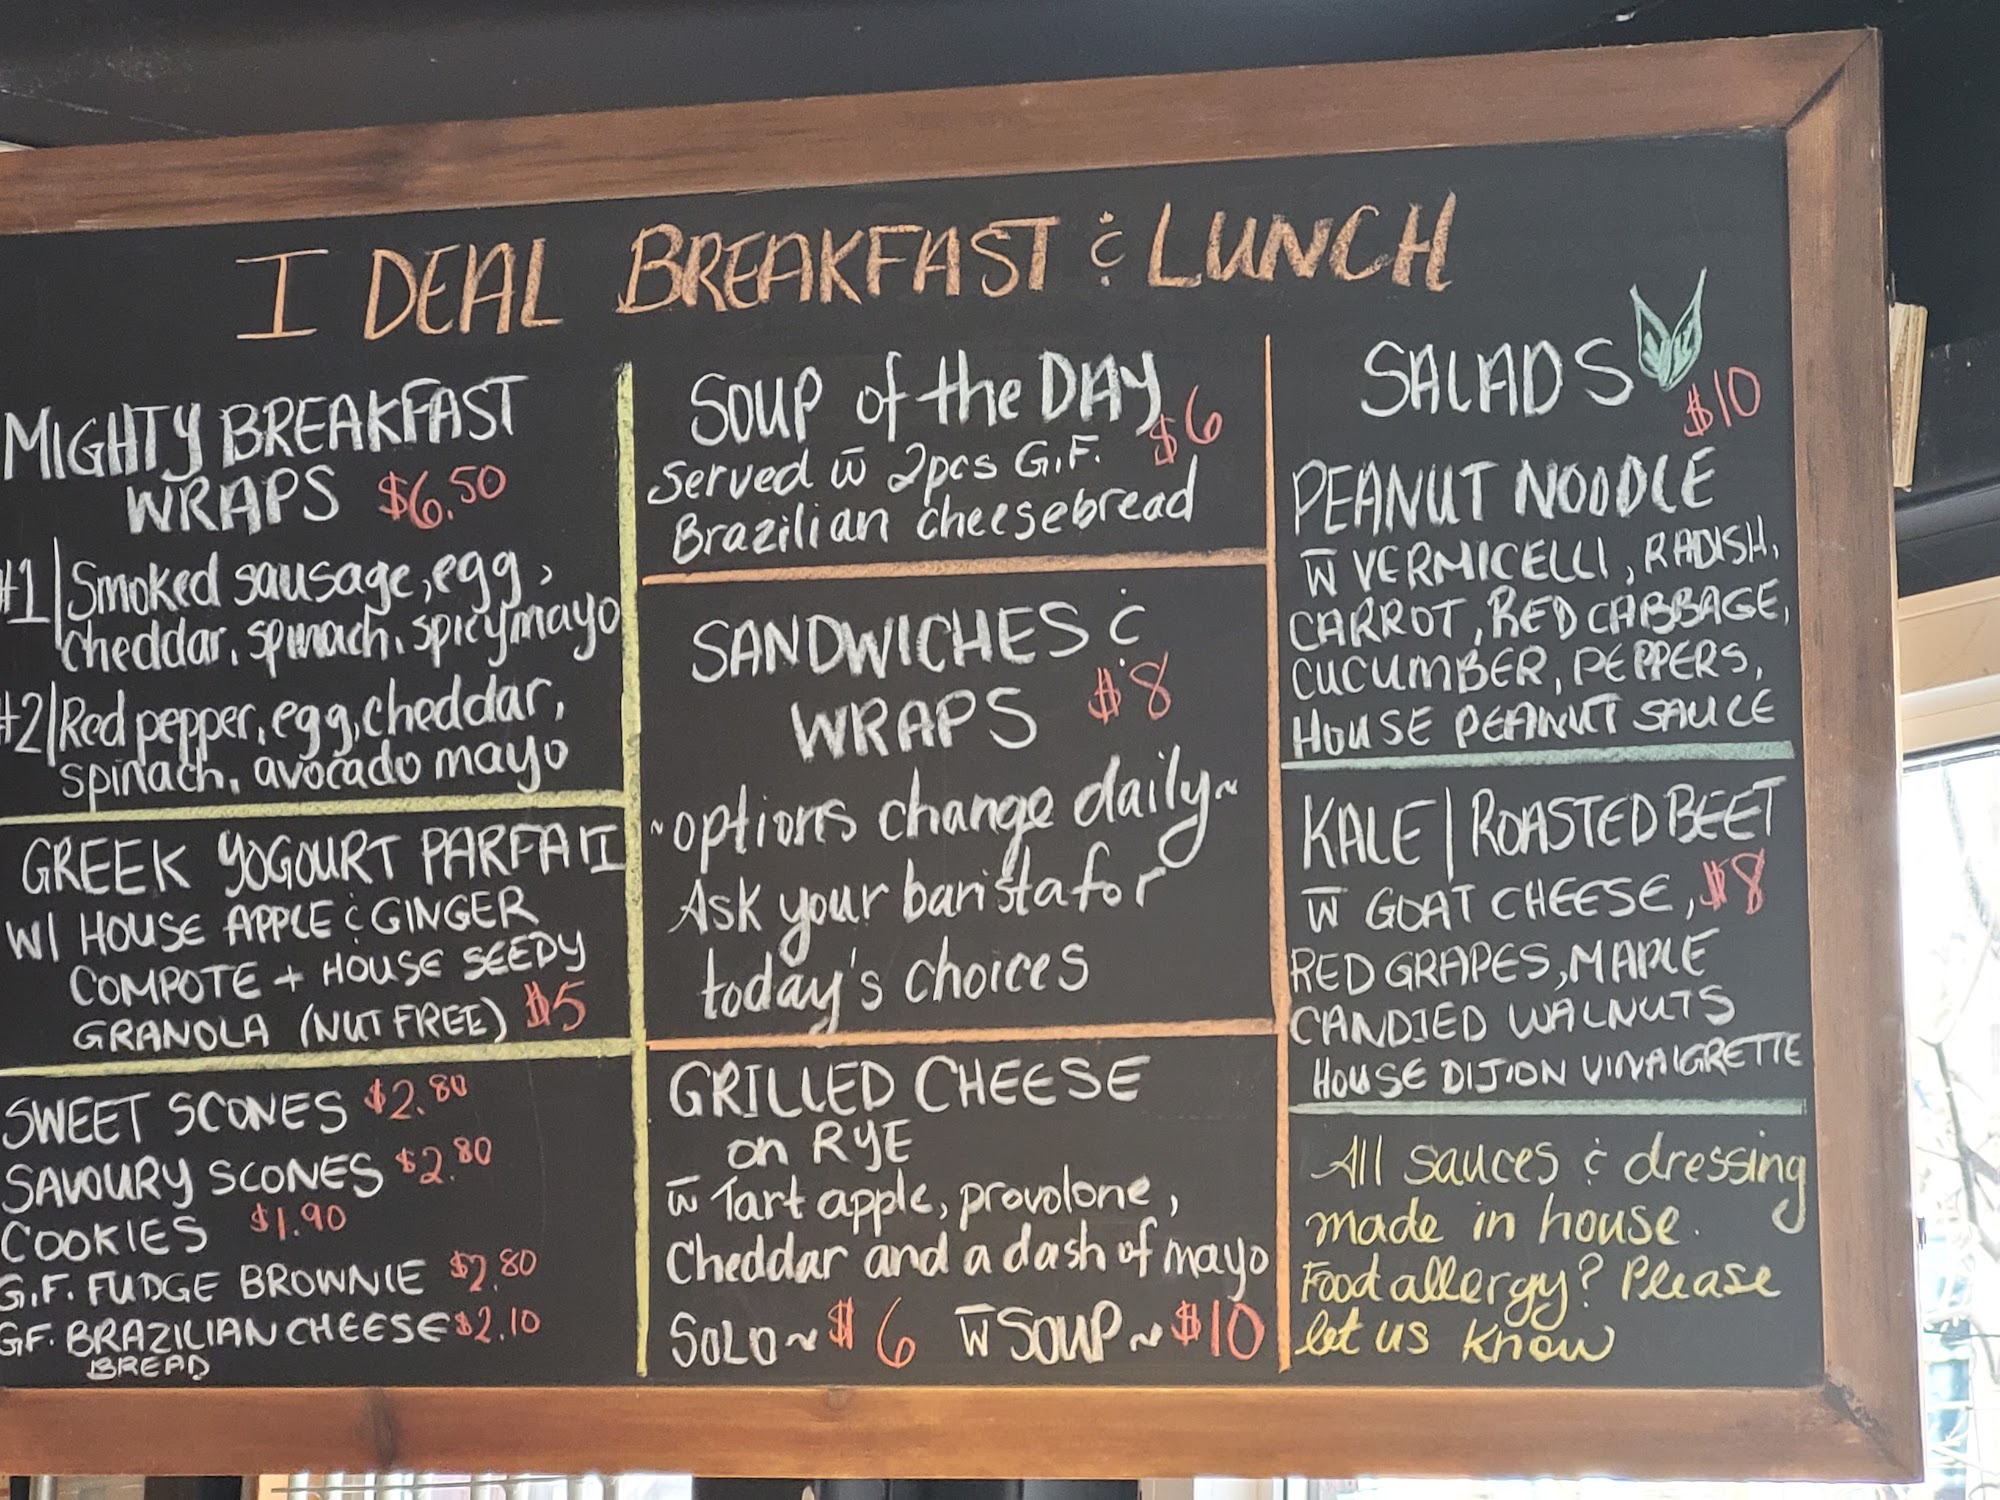 I DEAL BREAKFAST & LUNCH
MIGHTY BREAKFAST
WRAPS $6.50
#1 | Smoked sausage, egg,
cheddar, spinach, spicy mayo
#2 | Red pepper, egg, cheddar,
spinach, avocado mayo
GREEK YOGOURT PARFAIT
W/ HOUSE APPLE & GINGER
COMPOTE + HOUSE SEEDY
GRANOLA (NUT FREE) $5
SWEET SCONES $2.80
SAVOURY SCONES $2.80
COOKIES $1.90
G.F. FUDGE BROWNIE $2.80
G.F. BRAZILIAN CHEESE $2.10
BREAD
SOUP of the DAY
$6
Served w̄ 2pcs G.F.
Brazilian cheesebread
SANDWICHES &
WRAPS $8
~options change daily~
Ask your barista for
today's choices
GRILLED CHEESE
on RYE
w̄ Tart apple, provolone,
Cheddar and a dash of mayo
SOLO ~ $6 w̄ SOUP ~ $10
SALADS
$10
PEANUT NOODLE
w̄ VERMICELLI, RADISH,
CARROT, RED CABBAGE,
CUCUMBER, PEPPERS,
HOUSE PEANUT SAUCE
KALE | ROASTED BEET
w̄ GOAT CHEESE, $8
RED GRAPES, MAPLE
CANDIED WALNUTS
HOUSE DIJION VINAIGRETTE
All sauces & dressing
made in house.
Food allergy? Please
let us know